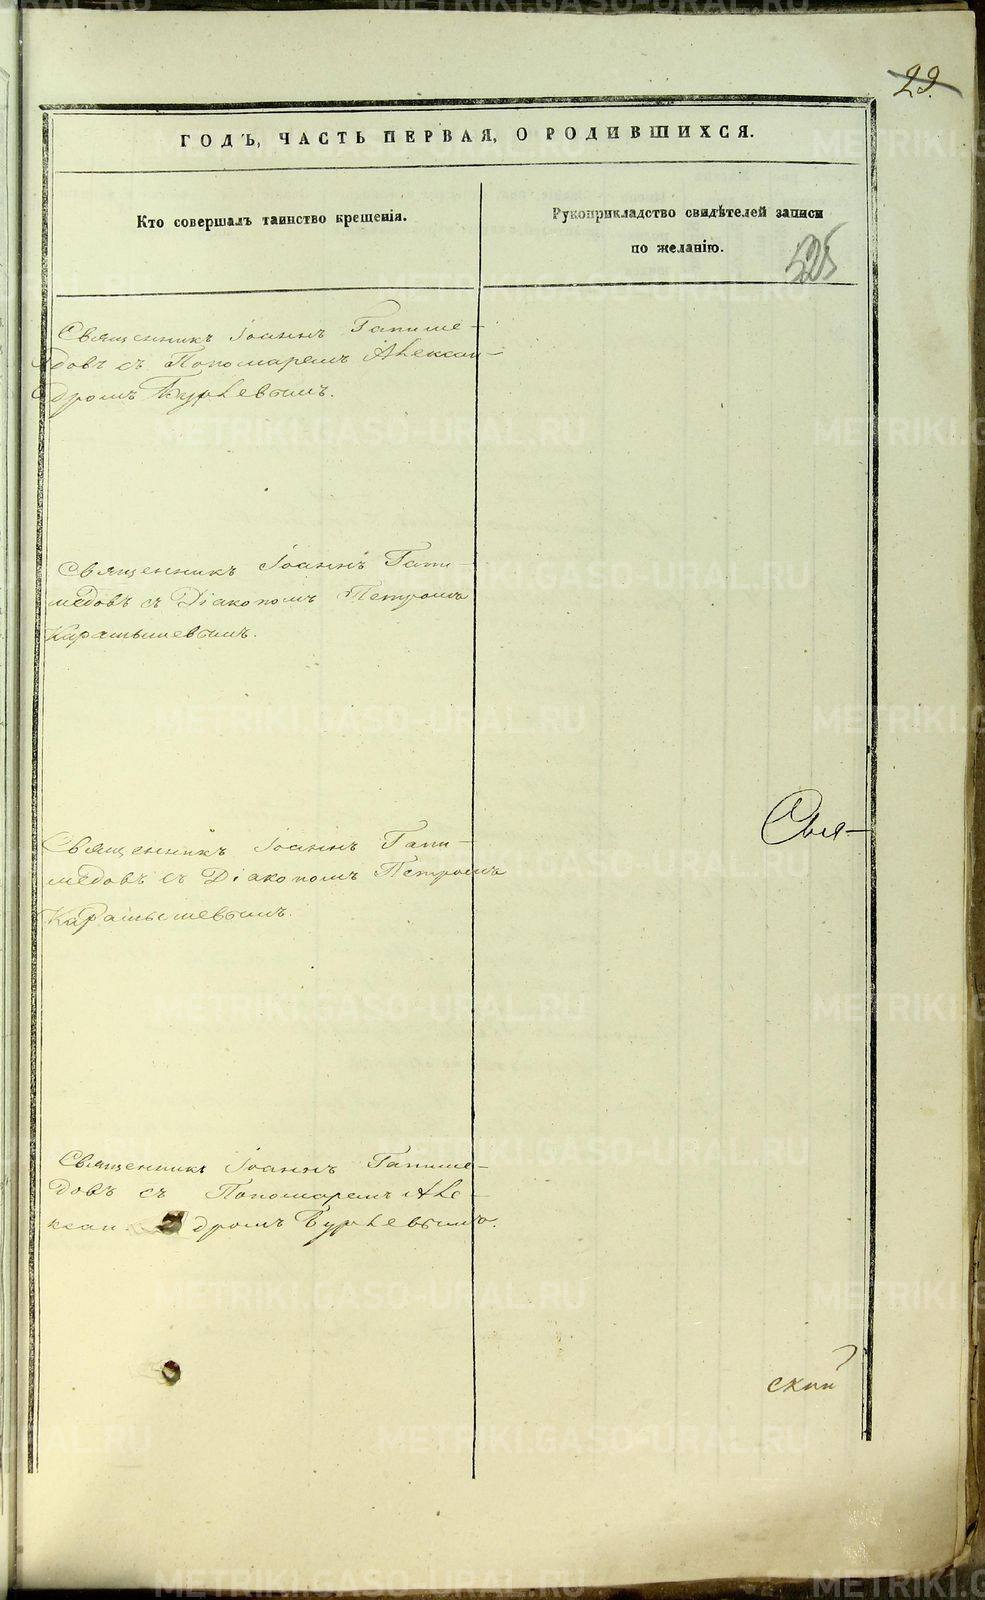 29.
ГОДЪ, ЧАСТЬ ПЕРВАЯ, О РОДИВШИХСЯ.
Кто совершалъ таинство крещенія.
Рукоприкладство свидѣтелей записи
по желанію.
525
Священникъ Іоаннъ Ганиме-
довъ съ Пономаремъ Алексан-
дромъ
Священникъ Іоаннъ Гани-
медовъ съ Діакономъ Петромъ
Карамышевымъ.
Священникъ Іоаннъ Гани-
медовъ съ Діакономъ Петромъ
Карамышевымъ.
Свя-
Священникъ Іоаннъ Ганиме-
довъ съ Пономаремъ Але-
ксан- дромъ
скій
METRIKI.GASO-URAL.RU